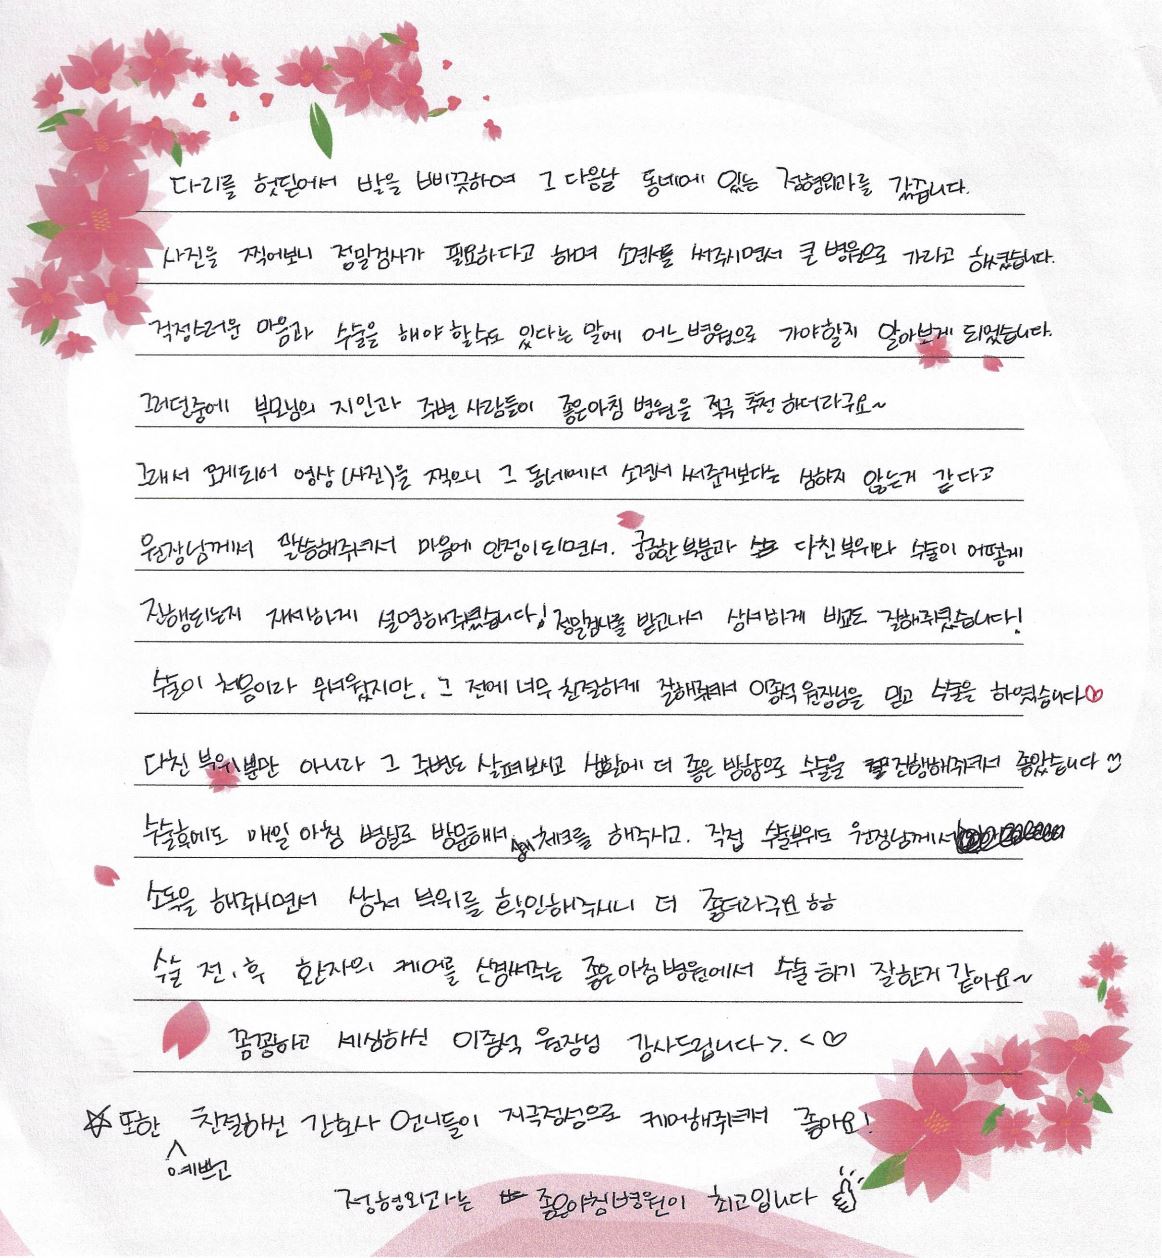 다리를 헛딛어서 발을 삐끗하여 그 다음날 동네에 있는 정형외과를 갔습니다.
사진을 찍어보니 정밀검사가 필요하다고 하며 소견서를 써주시면서 큰 병원으로 가라고 하셨습니다.
걱정스러운 마음과 수술을 해야 할수도 있다는 말에 어느병원으로 가야할지 알아보게 되었습니다.
그러던중에 부모님의 지인과 주변 사람들이 좋은아침 병원을 적극 추천 하더라구요~
그래서 오게되어 영상(사진)을 찍으니 그 동네에서 소견서 써준거보다는 심하지 않는거 같다고
원장님께서 말씀해주셔서 마음에 안정이되면서. 궁금한부분과 다친부위와 수술이 어떻게
진행되는지 자세하게 설명해주셨습니다! 정밀검사를 받고나서 상세하게 비교도 잘해주셨습니다!
수술이 처음이라 무서웠지만, 그 전에 너무 친절하게 잘해줘서 이종석 원장님을 믿고 수술을 하였습니다♡
다친 부위뿐만 아니라 그 주변도 살펴보시고 상황에 더 좋은 방향으로 수술을 진행해주셔서 좋았습니다
수술후에도 매일 아침 병실로 방문해서 체크를 해주시고. 직접 수술부위도 원장님께서
소독을 해주시면서 상처 부위를 확인해주시니 더 좋더라구요ㅎㅎ
수술 전,후 환자의 케어를 신경써주는 좋은아침병원에서 수술 하기 잘한거 같아요~
꼼꼼하고 세심하신 이종석 원장님 감사드립니다>.<♡
☆또한 예쁘고 친절하신 간호사 언니들이 지극정성으로 케어해주셔서 좋아요!
정형외과는 좋은아침병원이 최고입니다